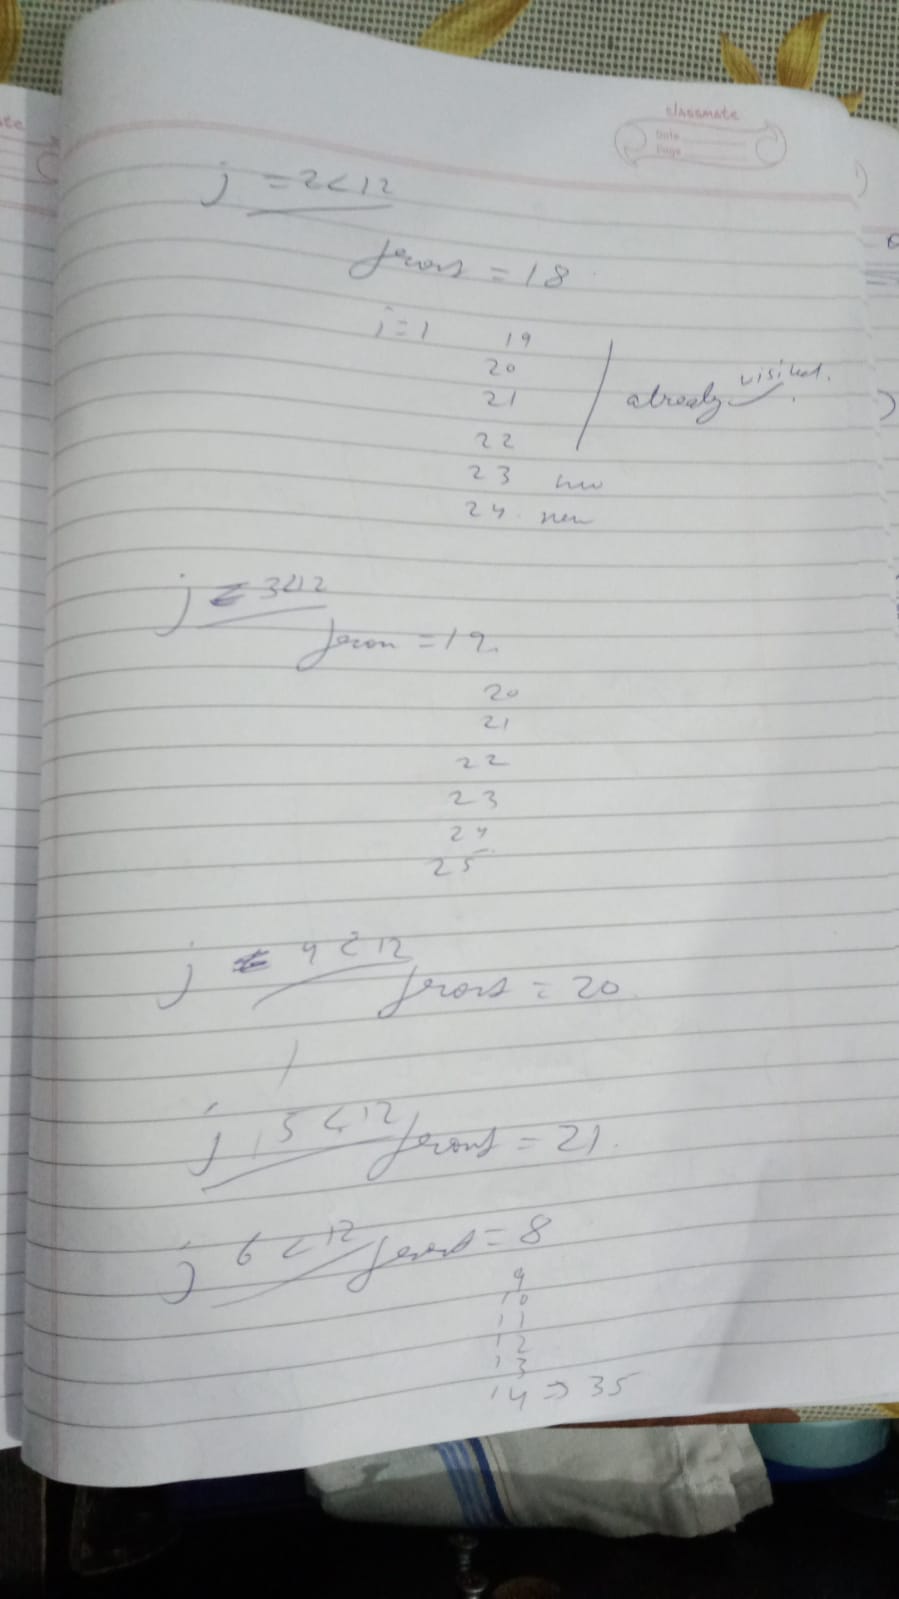 classmate
Date
Page
j = 2 < 12
front = 18
i = 1 19
20
21
already visited.
22
23 new
24. new
j = 3 < 12
fron = 19.
20
21
22
23
24
25
j = 4 < 12
front = 20
j 5 < 12 front = 21.
j 6 < 12 front = 8
9
10
11
12
13
14 => 35